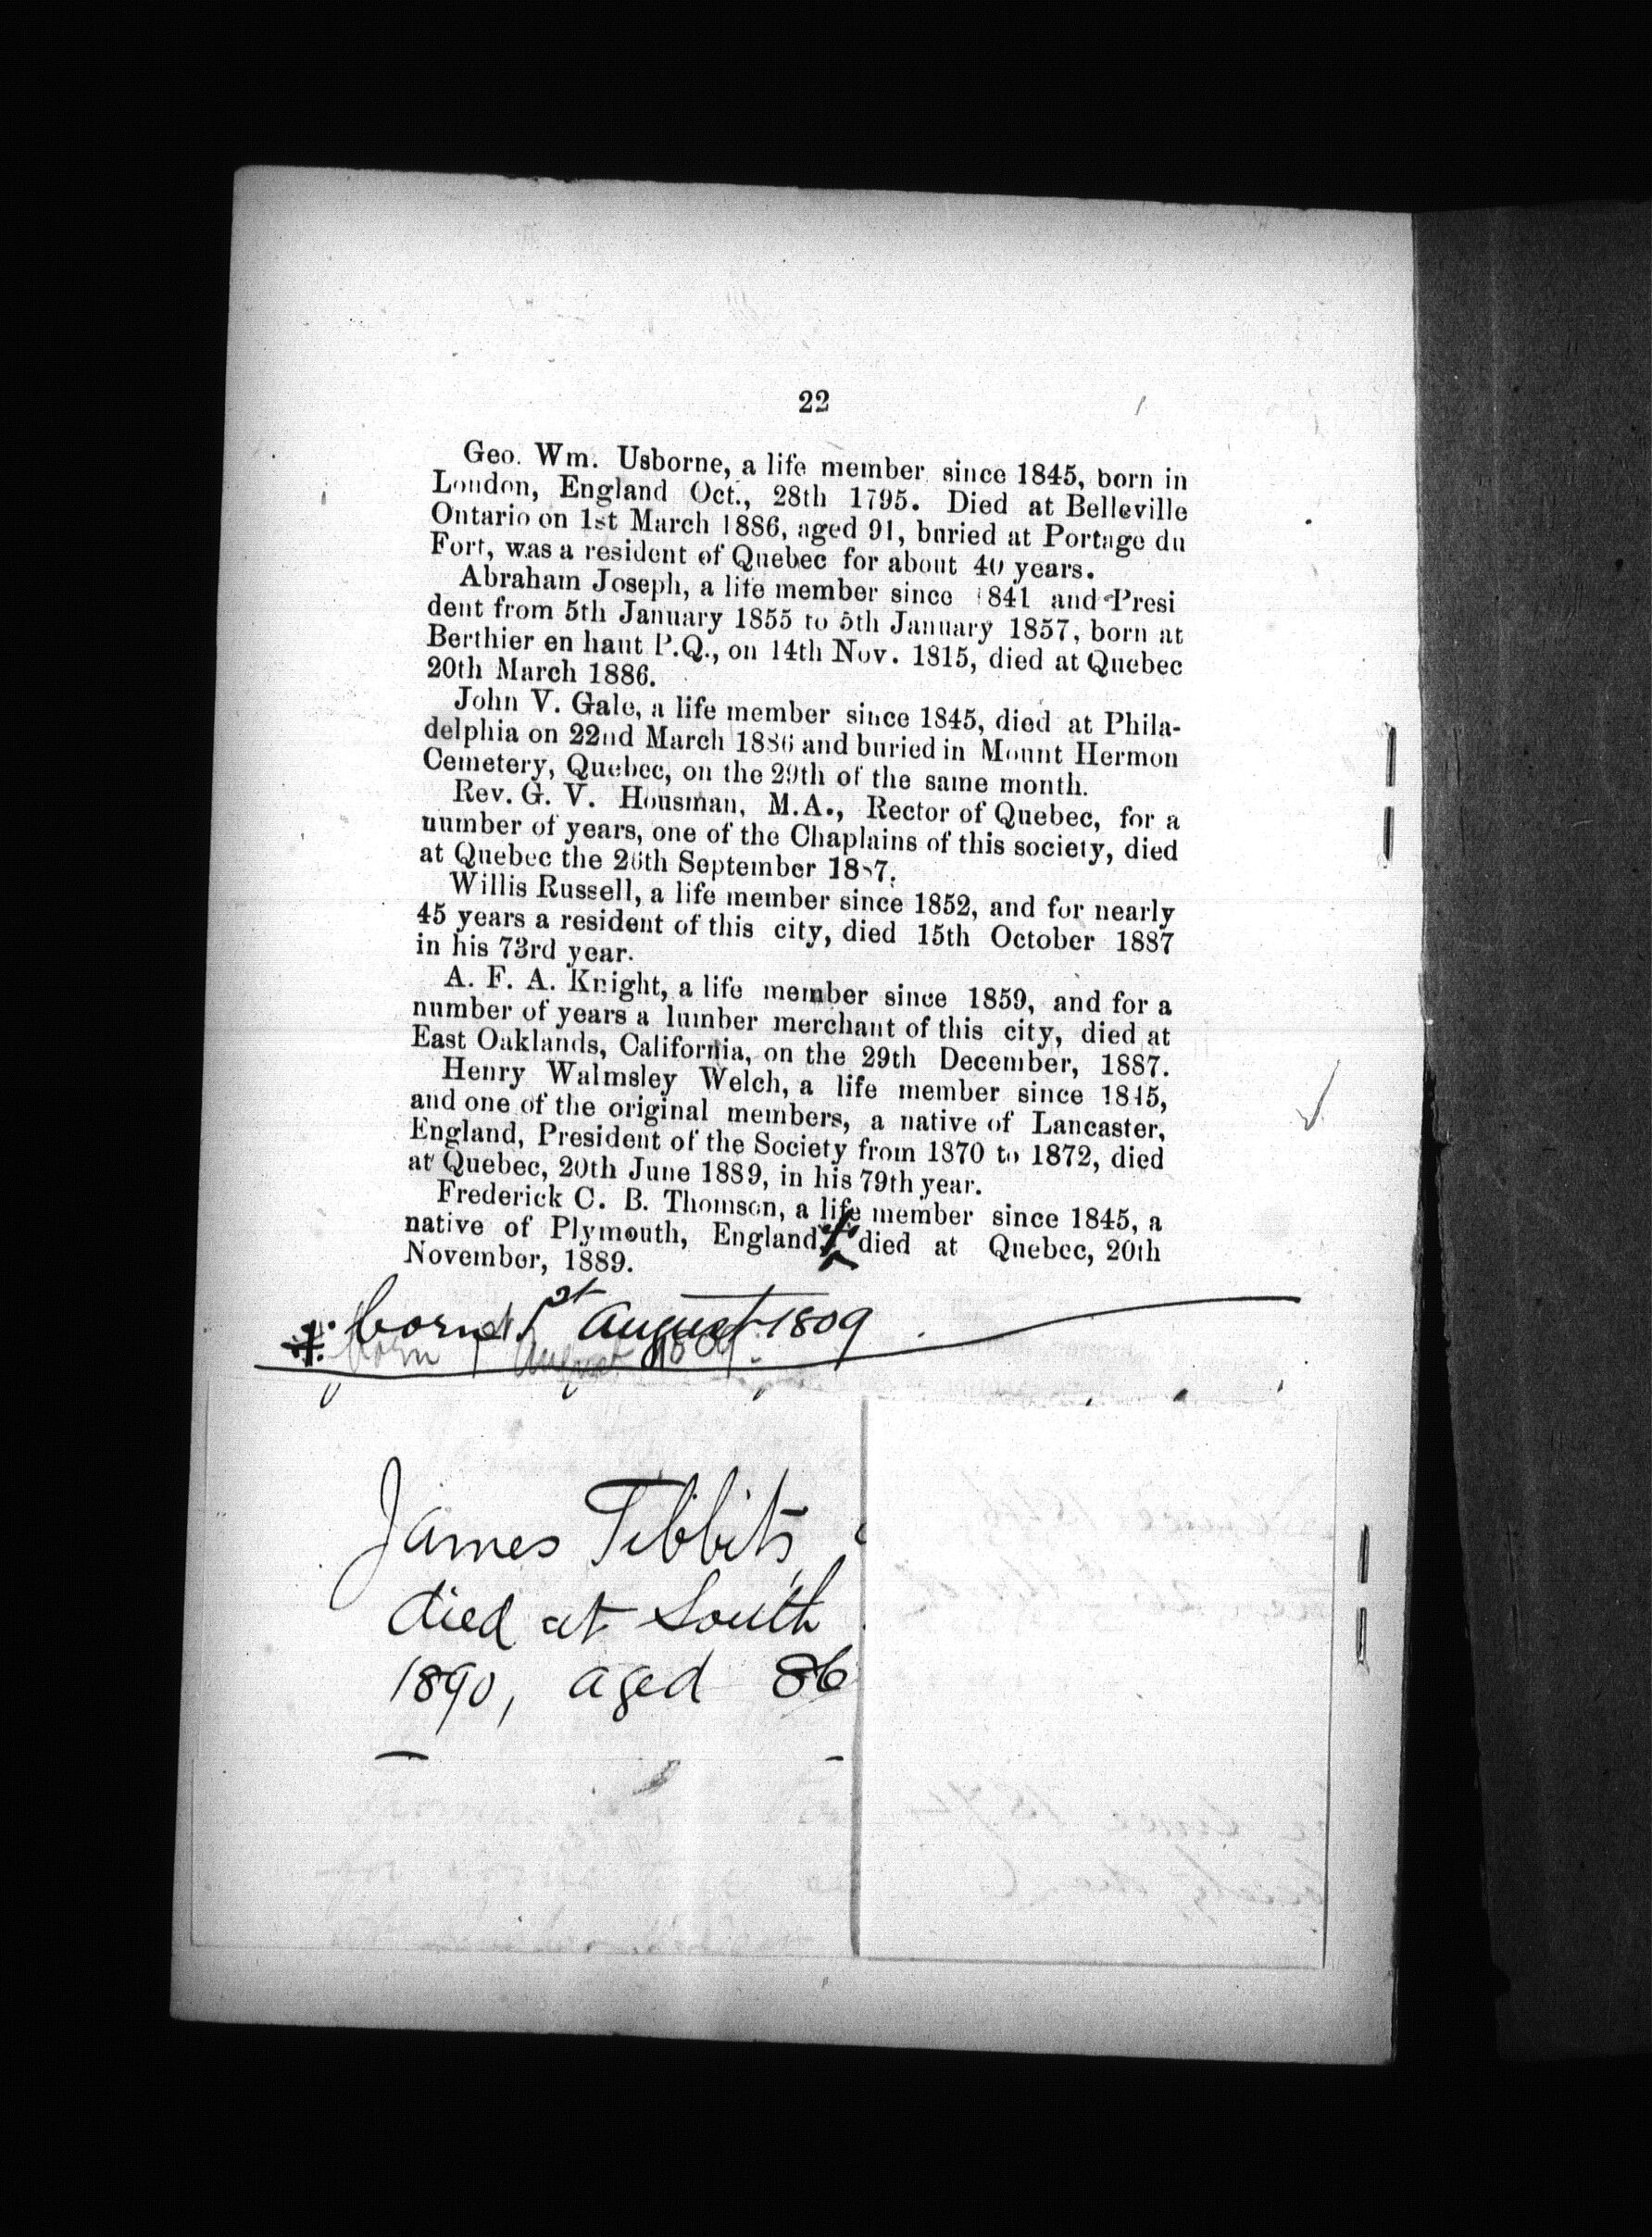 22
Geo. Wm. Usborne, a life member since 1845, born in
London, England Oct., 28th 1795. Died at Belleville
Ontario on 1st March 1886, aged 91, buried at Portage du
Fort, was a resident of Quebec for about 40 years.
Abraham Joseph, a life member since 1841 and Presi
dent from 5th January 1855 to 5th January 1857, born at
Berthier en haut P.Q., on 14th Nov. 1815, died at Quebec
20th March 1886.
John V. Gale, a life member since 1845, died at Phila-
delphia on 22nd March 1886 and buried in Mount Hermon
Cemetery, Quebec, on the 29th of the same month.
Rev. G. V. Housman, M.A., Rector of Quebec, for a
number of years, one of the Chaplains of this society, died
at Quebec the 26th September 1887.
Willis Russell, a life member since 1852, and for nearly
45 years a resident of this city, died 15th October 1887
in his 73rd year.
A. F. A. Knight, a life member since 1859, and for a
number of years a lumber merchant of this city, died at
East Oaklands, California, on the 29th December, 1887.
Henry Walmsley Welch, a life member since 1845,
and one of the original members, a native of Lancaster,
England, President of the Society from 1870 to 1872, died
at Quebec, 20th June 1889, in his 79th year.
Frederick C. B. Thomson, a life member since 1845, a
native of Plymouth, England, died at Quebec, 20th
November, 1889.
born 1st August 1809
born 1 August 1809.
James Tibbits,
died at South
1890, aged 86